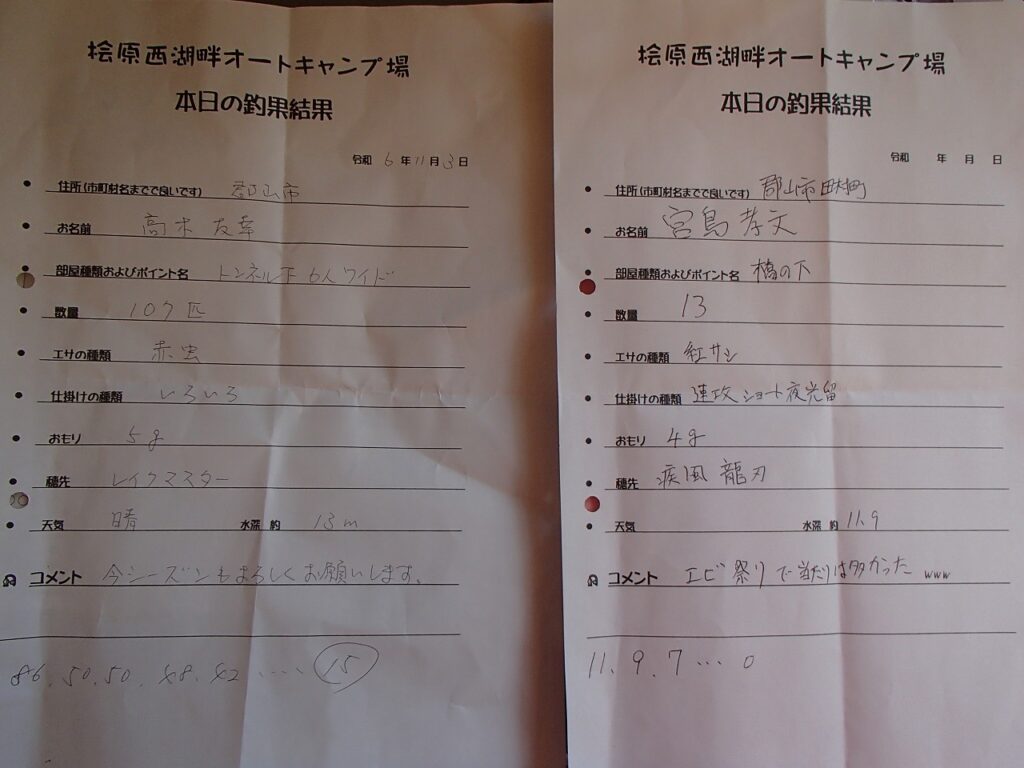 桧原西湖畔オートキャンプ場
本日の釣果結果
令和 6 年 11 月 3 日
住所(市町村名までで良いです) 郡山市
お名前 高木 友幸
部屋種類およびポイント名 トンネル下 6人ワイド
数量 107匹
エサの種類 赤虫
仕掛けの種類 いろいろ
おもり 5g
穂先 レイクマスター
天気 晴 水深 約 13m
コメント 今シーズンもよろしくお願いします。
86. 50. 50. 48. 42 ‥‥ 15
桧原西湖畔オートキャンプ場
本日の釣果結果
令和 年 月 日
住所(市町村名までで良いです) 郡山市
お名前 宮島 孝文
部屋種類およびポイント名 橋の下
数量 13
エサの種類 紅サシ
仕掛けの種類 速攻 ショート 夜光留
おもり 4g
穂先 疾風 龍刃
天気 水深 約 11.9
コメント エビ祭りで当たりは多かった www
11. 9. 7 … 0